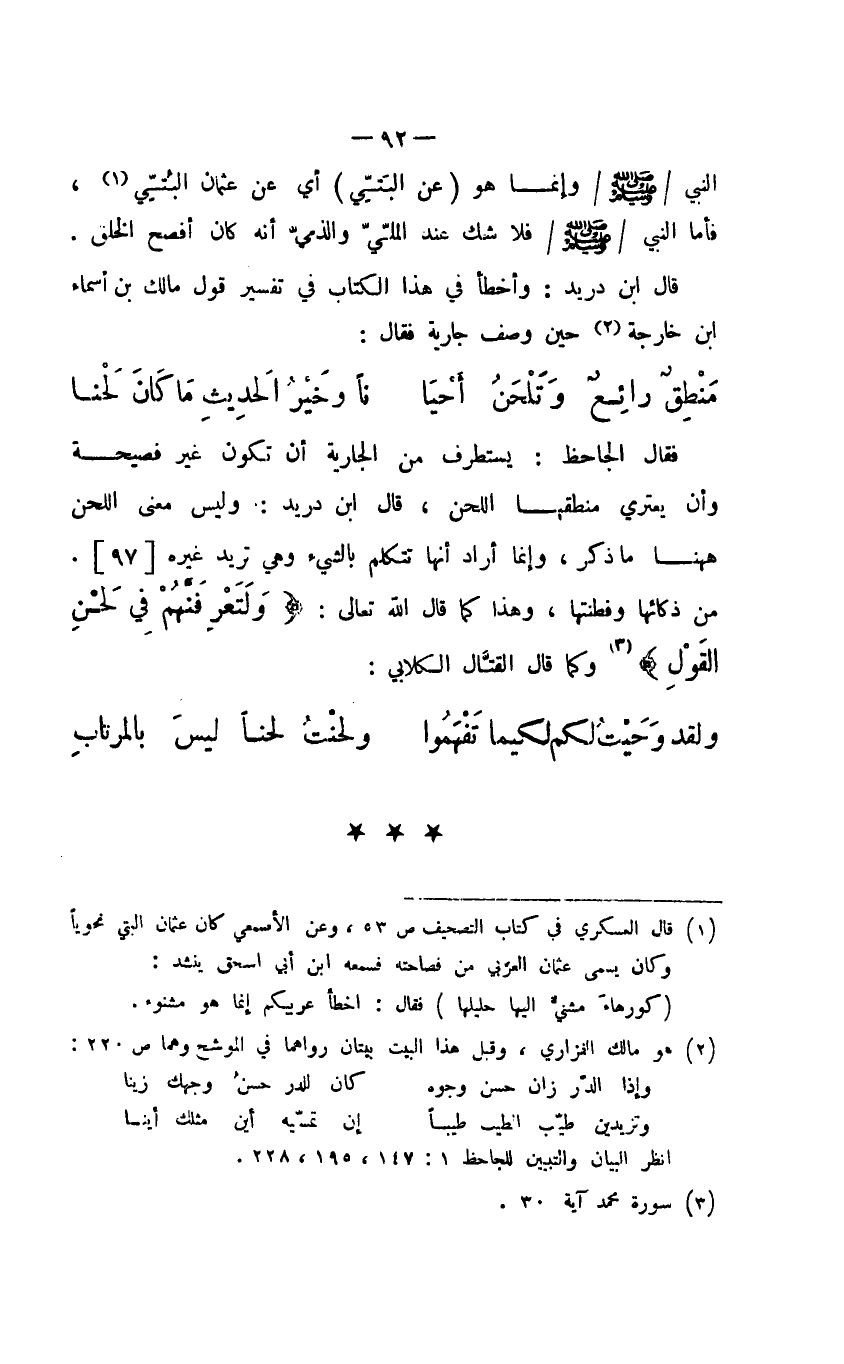 — ٩٢ —
النبي / ﷺ / وإنمـــا هو ( عن البَتيّي ) أي عن عثمان البُتيّي (١) ،
فأما النبي / ﷺ / فلا شك عند المليّ والذميّ أنه كان أفصح الخلق .
قال ابن دريد : وأخطأ في هذا الكتاب في تفسير قول مالك بن أسماء
ابن خارجة (٢) حين وصف جارية فقال :
مَنْطِقٌ رائِـعٌ وَتَلْحَنُ أَحْيَا ناً وخَيْرُ الَحدِيثِ مَا كَانَ لَحْنـا
فقال الجاحظ : يستطرف من الجارية أن تكون غير فصيحـــة
وأن يعتري منطقهـــا اللحن ، قال ابن دريد : وليس معنى اللحن
ههنـــا ما ذكر ، وإنما أراد أنها تتكلم بالشيء وهي تريد غيره [ ٩٧ ] .
من ذكائها وفطنتها ، وهذا كما قال الله تعالى : ﴿ وَلَتَعْرِفَنَّهُمْ فِي لَحْنِ
القَوْلِ ﴾ (٣) وكما قال القتَّال الكلابي :
ولقد وَحَيْتُ لكم لكيما تَفْهَمُوا ولحنْتُ لحنـاً ليسَ بالمرتابِ
★ ★ ★
(١) قال العسكري في كتاب التصحيف ص ٥٣ ، وعن الأصمعي كان عثمان البتي نحوياً
وكان يسمى عثمان العربي من فصاحته فسمعه ابن أبي اسحق ينشد :
( كورهاءَ مشنيٌّ اليها حليلها ) فقال : اخطأ عربيكم إنما هو مشنوء .
(٢) هو مالك الفزاري ، وقبل هذا البيت بيتان رواهما في الموشح وهما ص ٢٢٠ :
وإذا الدّر زان حسن وجوه كان للدر حسنُ وجهك زينا
وتزيدين طيّب الطيب طيبـاً إن تمسّيه أين مثلك أينـا
انظر البيان والتبيين للجاحظ ١ : ١٤٧ ، ١٩٥ ، ٢٢٨ .
(٣) سورة محمد آية ٣٠ .